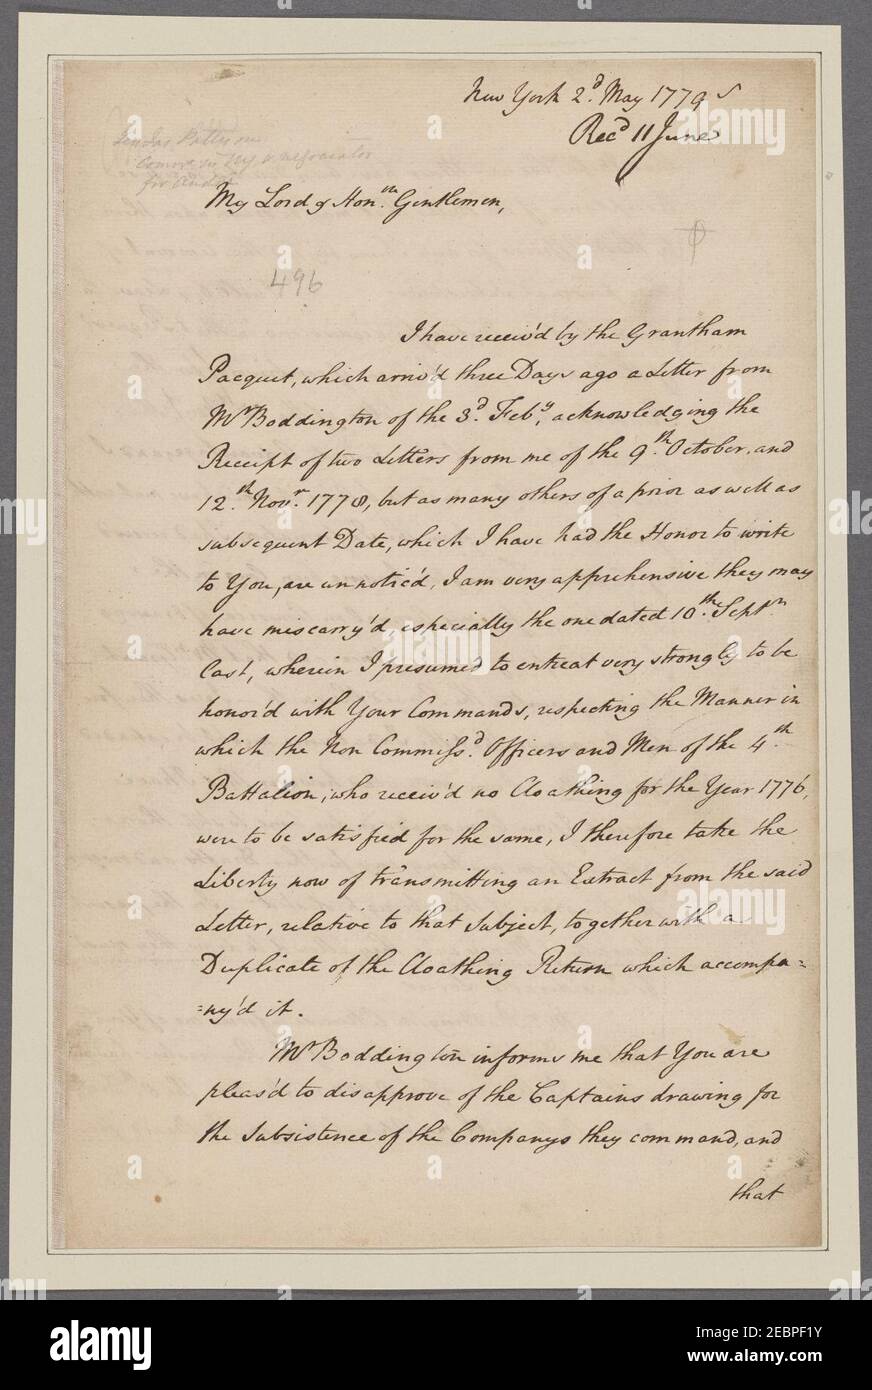 New York 2.d May 1779
Rec.d 11 June
Gen Jas Pattison
My Lord & Hon.ble Gentlemen,
496
I have receiv'd by the Grantham
Pacquet, which arriv'd three Days ago a Letter from
Mr Boddington of the 3.d Feb.y, acknowledging the
Receipt of two Letters from me of the 9.th October, and
12.th Nov.r 1778, but as many others of a prior as well as
subsequent Date, which I have had the Honor to write
to You, are unnotic'd, I am very apprehensive they may
have miscarry'd, especially the one dated 10.th Sept.r
last, wherein I presumed to entreat very strongly to be
honor'd with Your Commands, respecting the Manner in
which the Non Commiss.d Officers and Men of the 4.th
Battalion, who receiv'd no Cloathing for the Year 1776,
were to be satisfied for the same, I therefore take the
Liberty now of transmitting an Extract from the said
Letter, relative to that Subject, together with a
Duplicate of the Cloathing Return which accompa=
=ny'd it.
Mr Boddington informs me that You are
pleas'd to disapprove of the Captains drawing for
the Subsistence of the Companys they command, and
that
alamy
Image ID: 2EBPF1Y
www.alamy.com